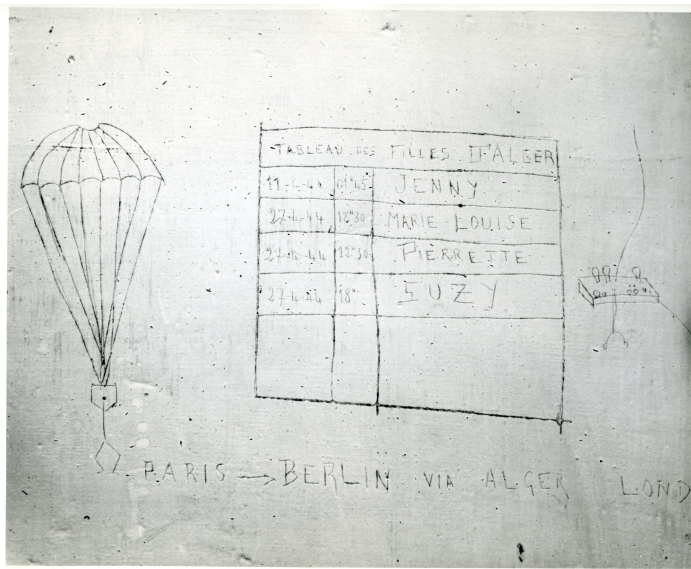 TABLEAU DES FILLES D'ALGER
11-4-44 01H45 JENNY
27-4-44 12H30 MARIE-LOUISE
27-4-44 12H30 PIERRETTE
27-4-44 18H SUZY
PARIS → BERLIN VIA ALGER LOND